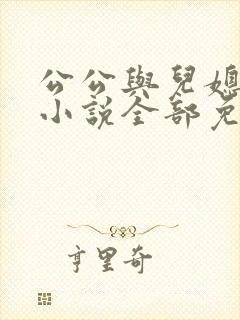 公公與兒媳
小說全部免
亨里奇